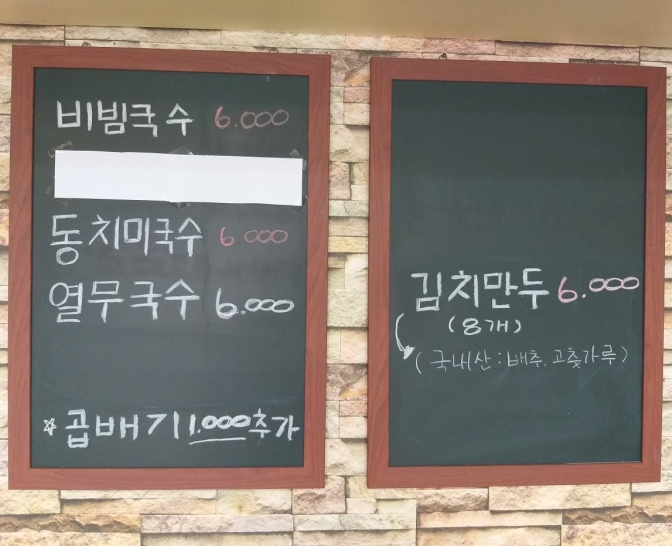 비빔국수 6.000
동치미국수 6.000
열무국수 6.000
* 곱배기 1.000 추가
김치만두 6.000
(8개)
(국내산:배추, 고춧가루)